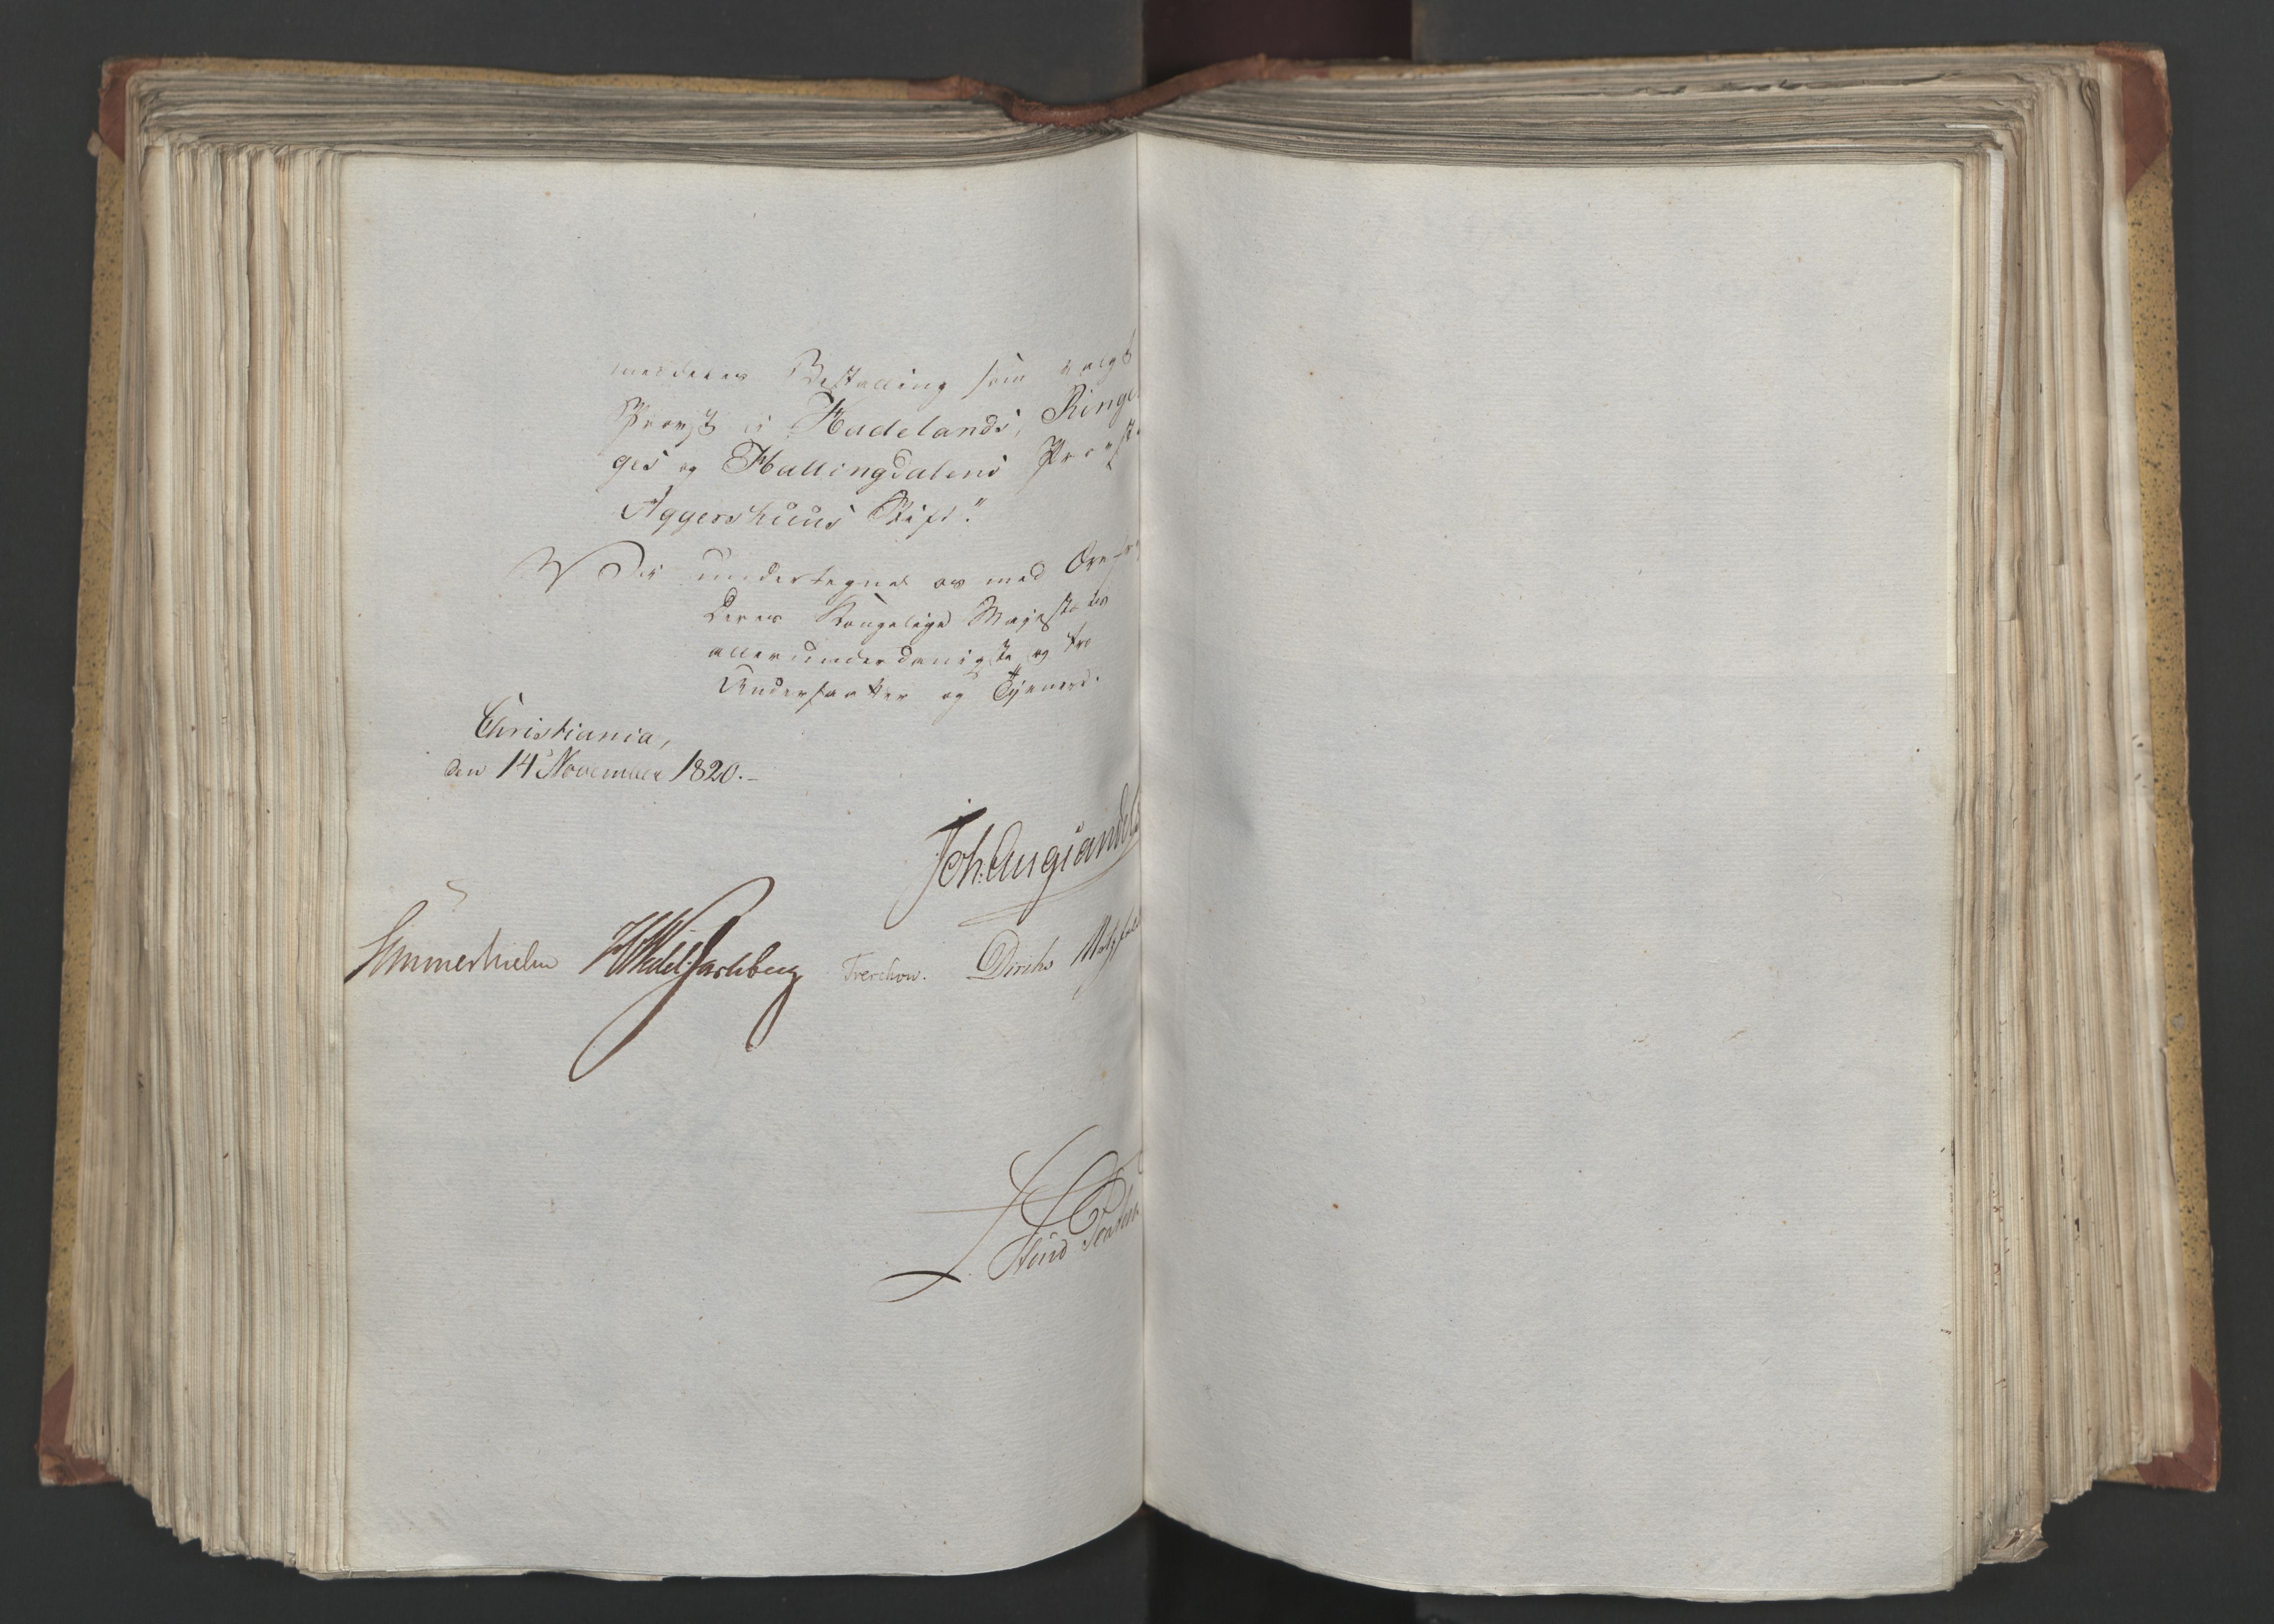 meddeles Bestalling som valgt
Provst i Hadelands, Ringe
ges og Hallingdalens Provst
Aggershuus Stift."
Vi undertegne os med
Deres Kongelige Majestæts
allerunderdanigste og tro
Undersaatter og Tjenere.
Christiania,
den 14 November 1820.-
Joh. Aug Sandels
Sommerhielm HWedel Jarlsberg Treschow. Diriks Motzfeldt